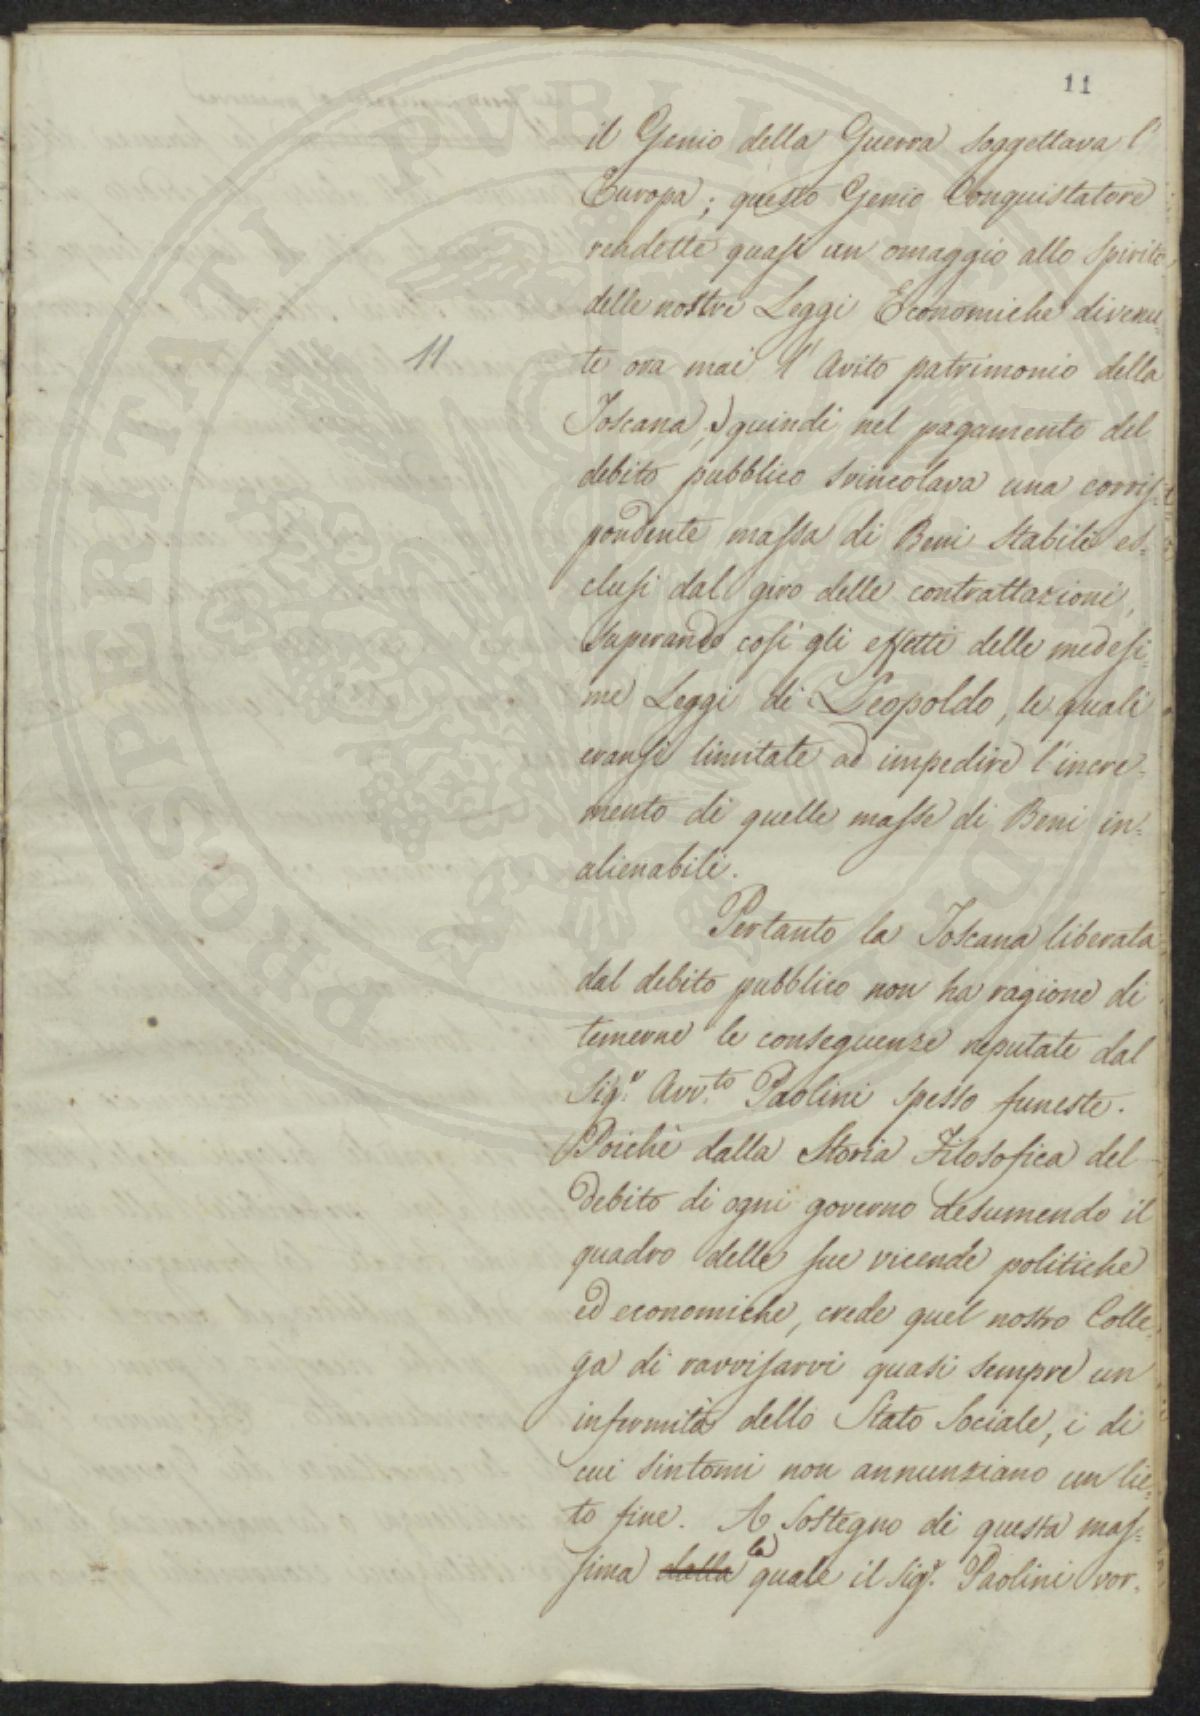 11
il Genio della Guerra soggettava l'
Europa; questo Genio Conquistatore
rendette quasi un omaggio allo spirito
delle nostre Leggi Economiche divenu-
te ora mai l'Avito patrimonio della
11
Toscana; quindi nel pagamento del
debito pubblico svincolava una corris-
pondente massa di Beni stabili es-
clusi dal giro delle contrattazioni,
superando così gli effetti delle medesi-
me Leggi di Leopoldo, le quali
eransi limitate ad impedire l'incre-
mento di quelle masse di Beni in-
alienabili.
Pertanto la Toscana liberata
dal debito pubblico non ha ragione di
temerne le conseguenze reputate dal
Sig.r Avv.to Paolini spesso funeste.
Poichè dalla Storia Filosofica del
Debito di ogni governo desumendo il
quadro delle sue vicende politiche
ed economiche, crede quel nostro Colle-
ga di ravvisarvi quasi sempre un
infermità dello Stato Sociale, i di
cui sintomi non annunziano un lie-
to fine. A Sostegno di questa mas-
sima dalla la quale il Sig.r Paolini vor-
PROSPERITATI PUBLICAE